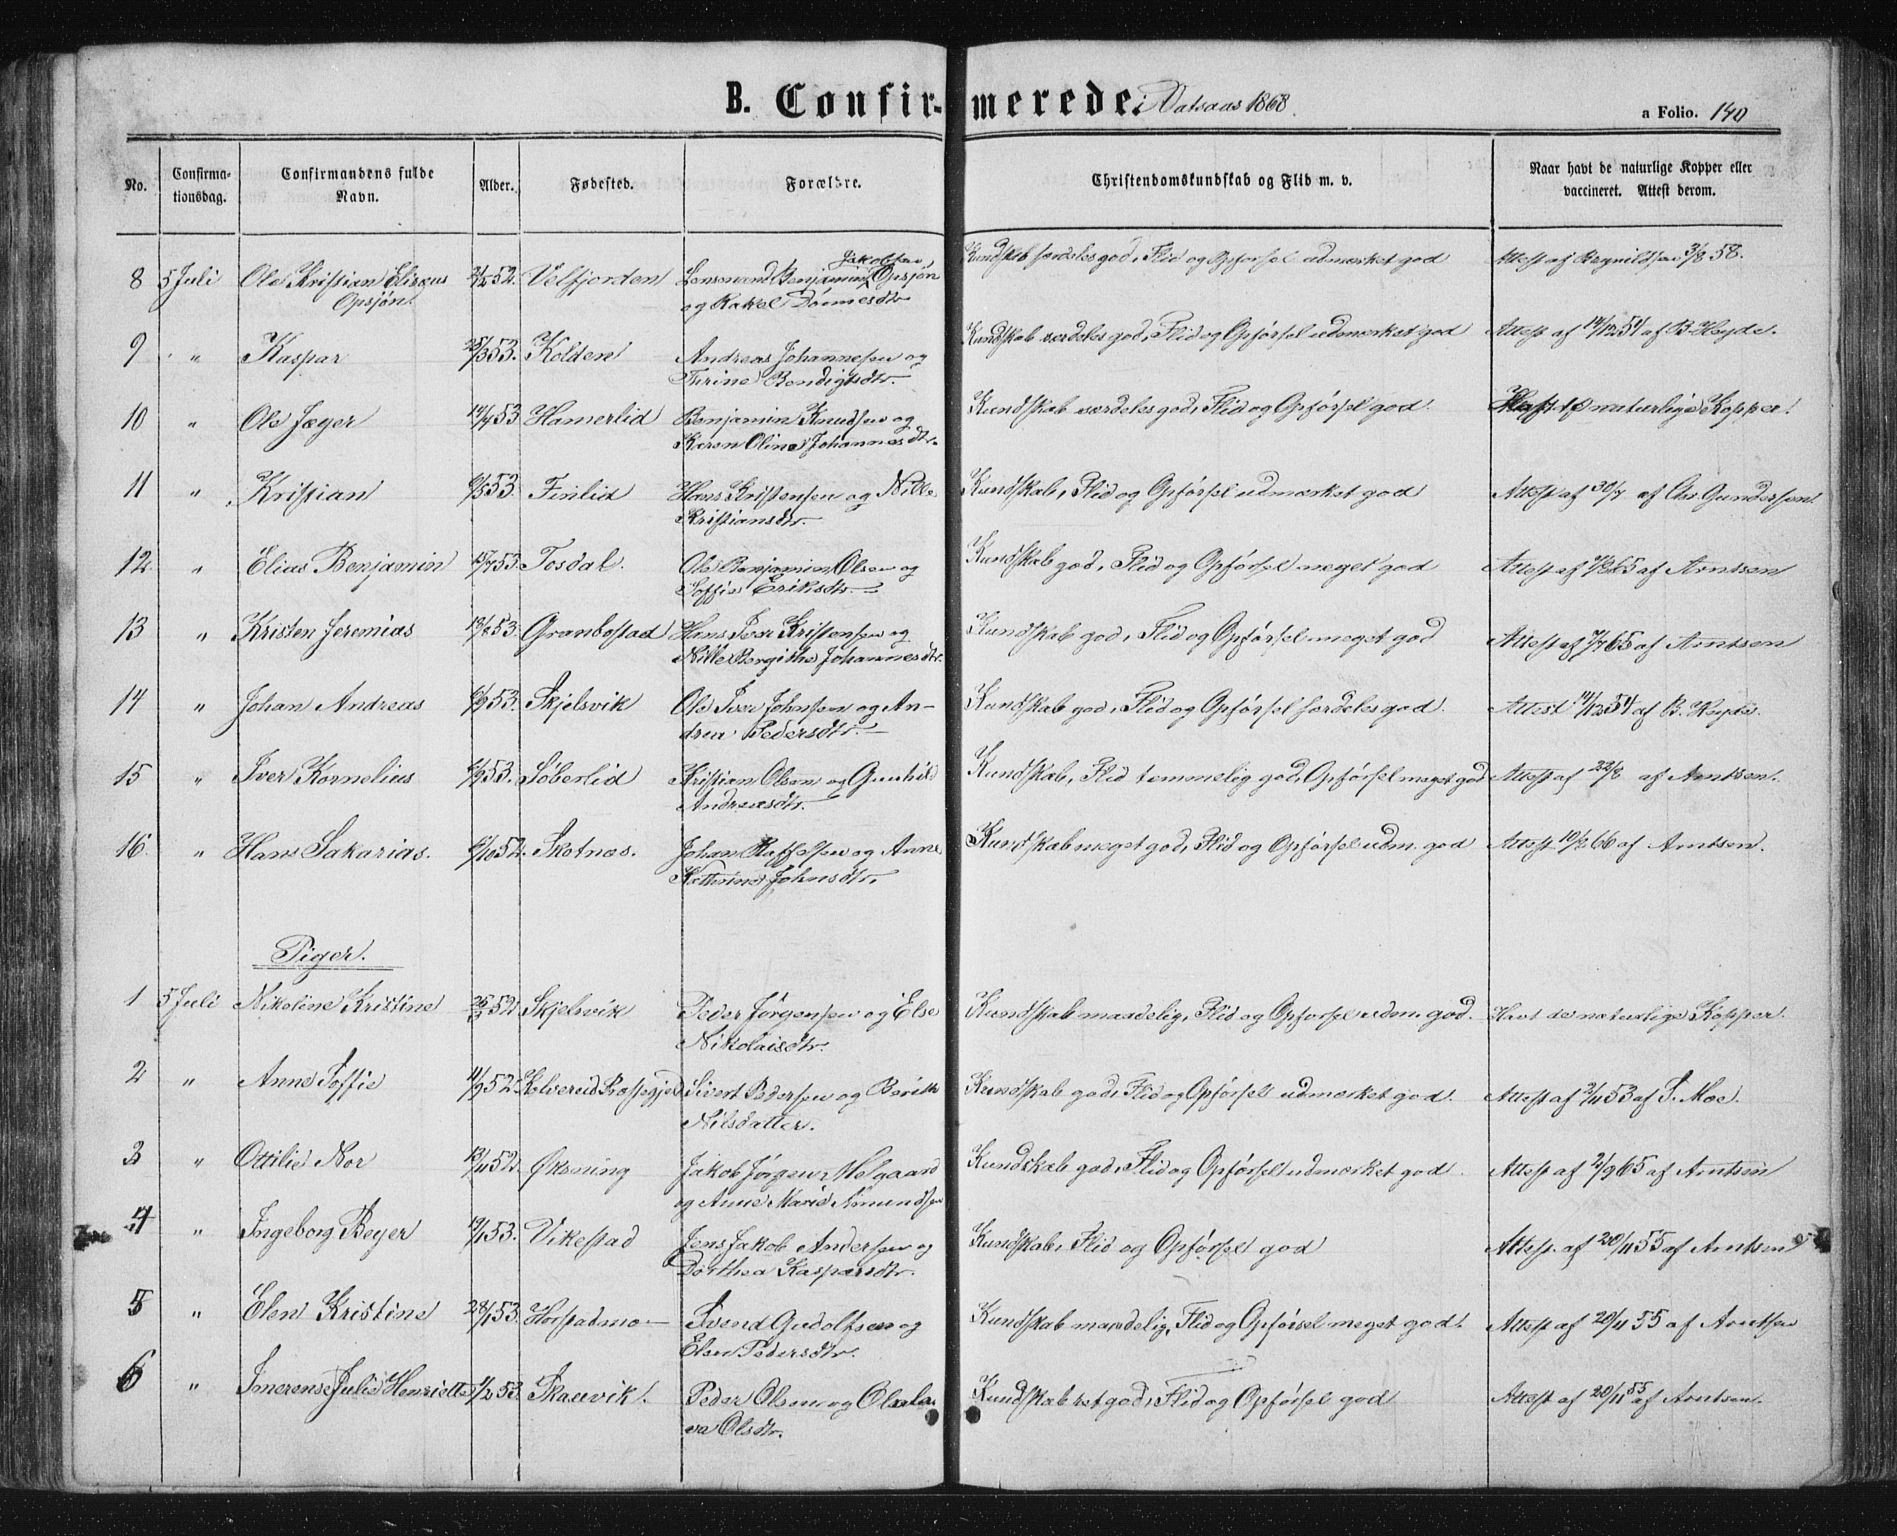 B. Confir-merede i Vatsaas 1868. a Folio. 140
No. Confirma-tionsdag. Confirmandens fulde Navn. Alder. Fødested. Forældre. Christendomskundskab og Flid m. v. Naar havt de naturlige Kopper eller vaccineret. Attest derom.
8 5 Juli Ole Kristian Opsjøn 52. Velfjorden Lensmand Benjamin Jakobsen Opsjøn
og Rakel Kundskab særdeles god, Flid og Opførsel udmærket god Attest af 3/8 58.
9 " Kaspar 25/3 53. Kolden Andreas Johannesen og
Turine Bendigtsdtr. Kundskab særdeles god, Flid og Opførsel udmærket god Attest af 14/12 54 af B. Heyde.
10 " Ole Jæger 14/4 53 Hamerlid Benjamin Knudsen og
Karen Oline Johannesdtr. Kundskab særdeles god, Flid og Opførsel god. Havt de naturlige Kopper.
11 " Kristian 6/5 53. Finlid Hans Kristensen og Nille
Kristiansdtr. Kundskab, Flid og Opførsel udmærket god Attest af 30/7 af Chr. Gundersen
12 " Elias Benjamin 15/7 53. Tosdal. Ole Benjamin Olsen og
Soffie Eriksdtr. Kundskab god, Flid og Opførsel meget god Attest af 65 af Arntsen
13 " Kristen Jeremias 18/8 53. Granbostad Hans Iver Kristensen og
Nille Bergithe Johannesdtr. Kundskab god, Flid og Opførsel meget god Attest af 7/7 65 af Arntsen
14 " Johan Andreas 6/9 53. Skjelsvik Ole Iver Johnsen og An-
drea Pedersdtr. Kundskab god, Flid og Opførsel særdeles god. Attest 14/12 54 af B. Heyde.
15 " Iver Kornelius 6/9 53. Søberlid Kristian Olsen og Gunhild
Andreasdtr. Kundskab, Flid temmelig god, Opførsel meget god Attest af 22/8 af Arntsen.
16. " Hans Sakarias. 6/10 52. Skotnes. Johan Raffelsen og Anne
Kathrine Johnsdtr. Kundskab meget god, Flid og Opførsel udm. god Attest 10/2 66 af Arntsen.
Piger.
1 5 Juli Nikoline Kristine 52 Skjelsvik Peder Jørgensen og Else
Nikolaisdtr. Kundskab maadelig, Flid og Opførsel udm. god. Havt de naturlige Kopper.
2 " Anne Soffie 11/9 52. Kolvereid Præstegjeld Sivert Pedersen og Berith
Nilsdatter. Kundskab god, Flid og Opførsel udmærket god. Attest af 2/11 53 af S. Moe.
3 " Ottilie Nor 13/11 52. Øksning Jakob Jørgen Melgaard
og Anne Marie Amundsen Kundskab god, Flid og Opførsel udmærket god. Attest af 2/9 65 af Arntsen
4 " Ingeborg Beyer 19/1 53. Vikestad Jens Jakob Andersen og
Dorthea Kaspersdtr. Kundskab, Flid og Opførsel god Attest af 20/11 55 af Arntsen
5 " Elen Kristine 28/1 53. Horstadmo Svend Gudolfsen og
Elen Pedersdtr. Kundskab maadelig, Flid og Opførsel meget god. Attest af 20/11 55 af Arntsen
6 " Imerense Julie Henriette 1/2 53. Skaevik. Peder Olsen og
Olsdtr. Kundskab ret god, Flid og Opførsel god Attest af 20/11 55 af Arntsen.